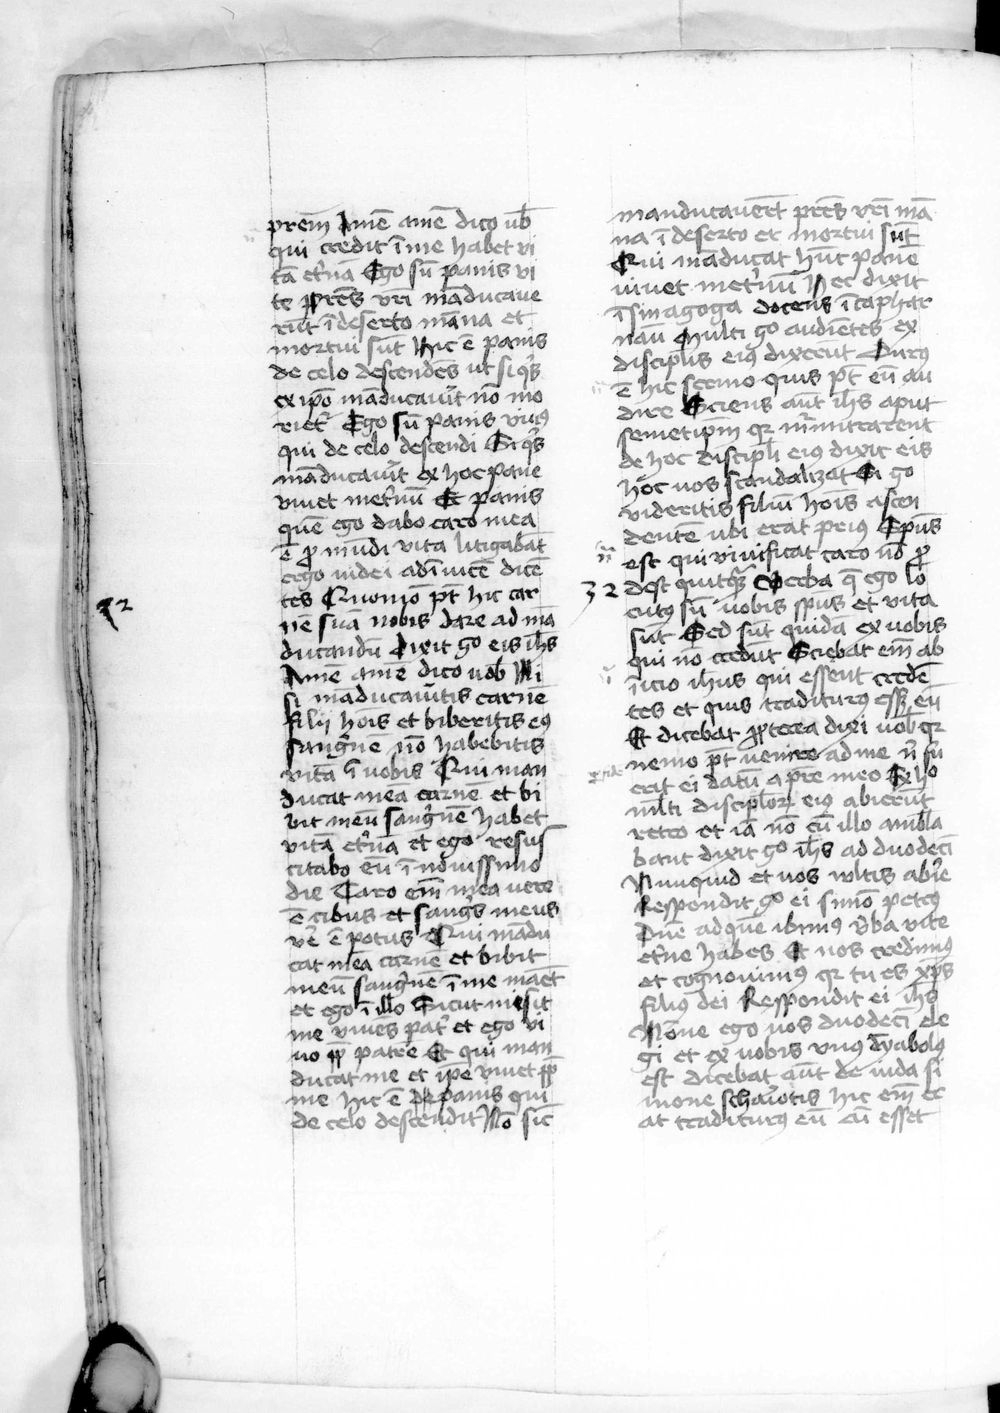 prem̄ Amē amē dico uob̄
qui credit ī me habet vi
tā et̓nā Ego sū panis vi
te Pr̄es vr̄i māducaue
rūt ī deserto māna et
mortui sūt Hic ē panis
de celo descendēs ut si q̓s
ex ip̄o māducau̓it nō mo
riet̓ Ego sū panis viuꝰ
qui de celo descendi Si q̓s
māducau̓it ex hoc pane
viuet inet̓nū Et panis
quē ego dabo caro mea
ē ꝓ mūdi vita litigabāt
ergo iudei adīuicē dicē
tes Quomō pt̄ hic car
nē suā nobis dare ad mā
ducandū Dixit g̊ eis ih̄s
Amē amē dico uob̄ Ni
si māducau̓itis carnē
filij hoīs et biberitis eiꝰ
sang̓nē nō habebitis
vitā ī vobis Qui man
ducat meā carnē et bi
bit meū sang̓nē habet
vitā et̓nā et ego resus
citabo eū ī nouissimo
die Caro em̄ mea vere
ē cibus et sang̓s meus
ve̓ ē potus Qui mādu
cat meā carnē et bibit
meū sang̓nē ī me manet
et ego ī illo Sicut misit
me viuēs pat̓ et ego vi
uo ꝓp̄ patrē Et qui man
ducat me et ip̄e viuet ꝓp̄
me hic ē panis qui
de celo descendit Nō sic̄
92
manducauerūt pr̄es vr̄i mā
na ī deserto et mortui sūt
Qui māducat hūc panē
viuet inet̓nū Hec dixit
ī sinagoga docens ī caphar
naū Multi g̊ audientes ex
discipl̄is eiꝰ dixerūt Durꝰ
ē hic sermo quis pt̄ eū au
dire Sciens aūt ih̄s aput
semetip̄m qr m̓murarent
de hoc discipl̄i eiꝰ dixit eis
hoc uos scandalizat Si g̊
videritis filiū hoīs ascen
dentē ubi erat priꝰ Sp̄us
est qui viuificat caro nō ꝓ
32 dest quitq̄ Verba q̄ ego lo
cutꝰ sū uobis sp̄us et vita
sūt Sed sūt quidā ex uobis
qui nō credūt Sciebat em̄ ab
īicio ihus qui essent credē
tes et quis traditurus ess̄ eū
Et dicebat ꝓpterea dixi uob̄ qr
nemo pt̄ uenire ad me n̓ fu
erit ei datū a pr̄e meo Ex h̊
m̄lti discipl̄orꝝ eiꝰ abierūt
retro et iā nō cū illo ambla
bant dixit g̊ ih̄s ad duodecī
Nunquid et uos wltis abi̓e
Respondit g̊ ei simō petrꝰ
Dn̄e ad quē ibimꝰ v̓ba vite
et̓ne habes Et nos credimꝰ
et cognouimꝰ qr tu es xp̄s
filiꝰ dei Respondit ei ih̄s
Nōne ego uos duodecī ele
gi et ex uobis vnꝰ dyabolꝰ
est dicebat aūt de iuda si
mone schariotis hic em̄ er
at traditurꝰ eū cū esset